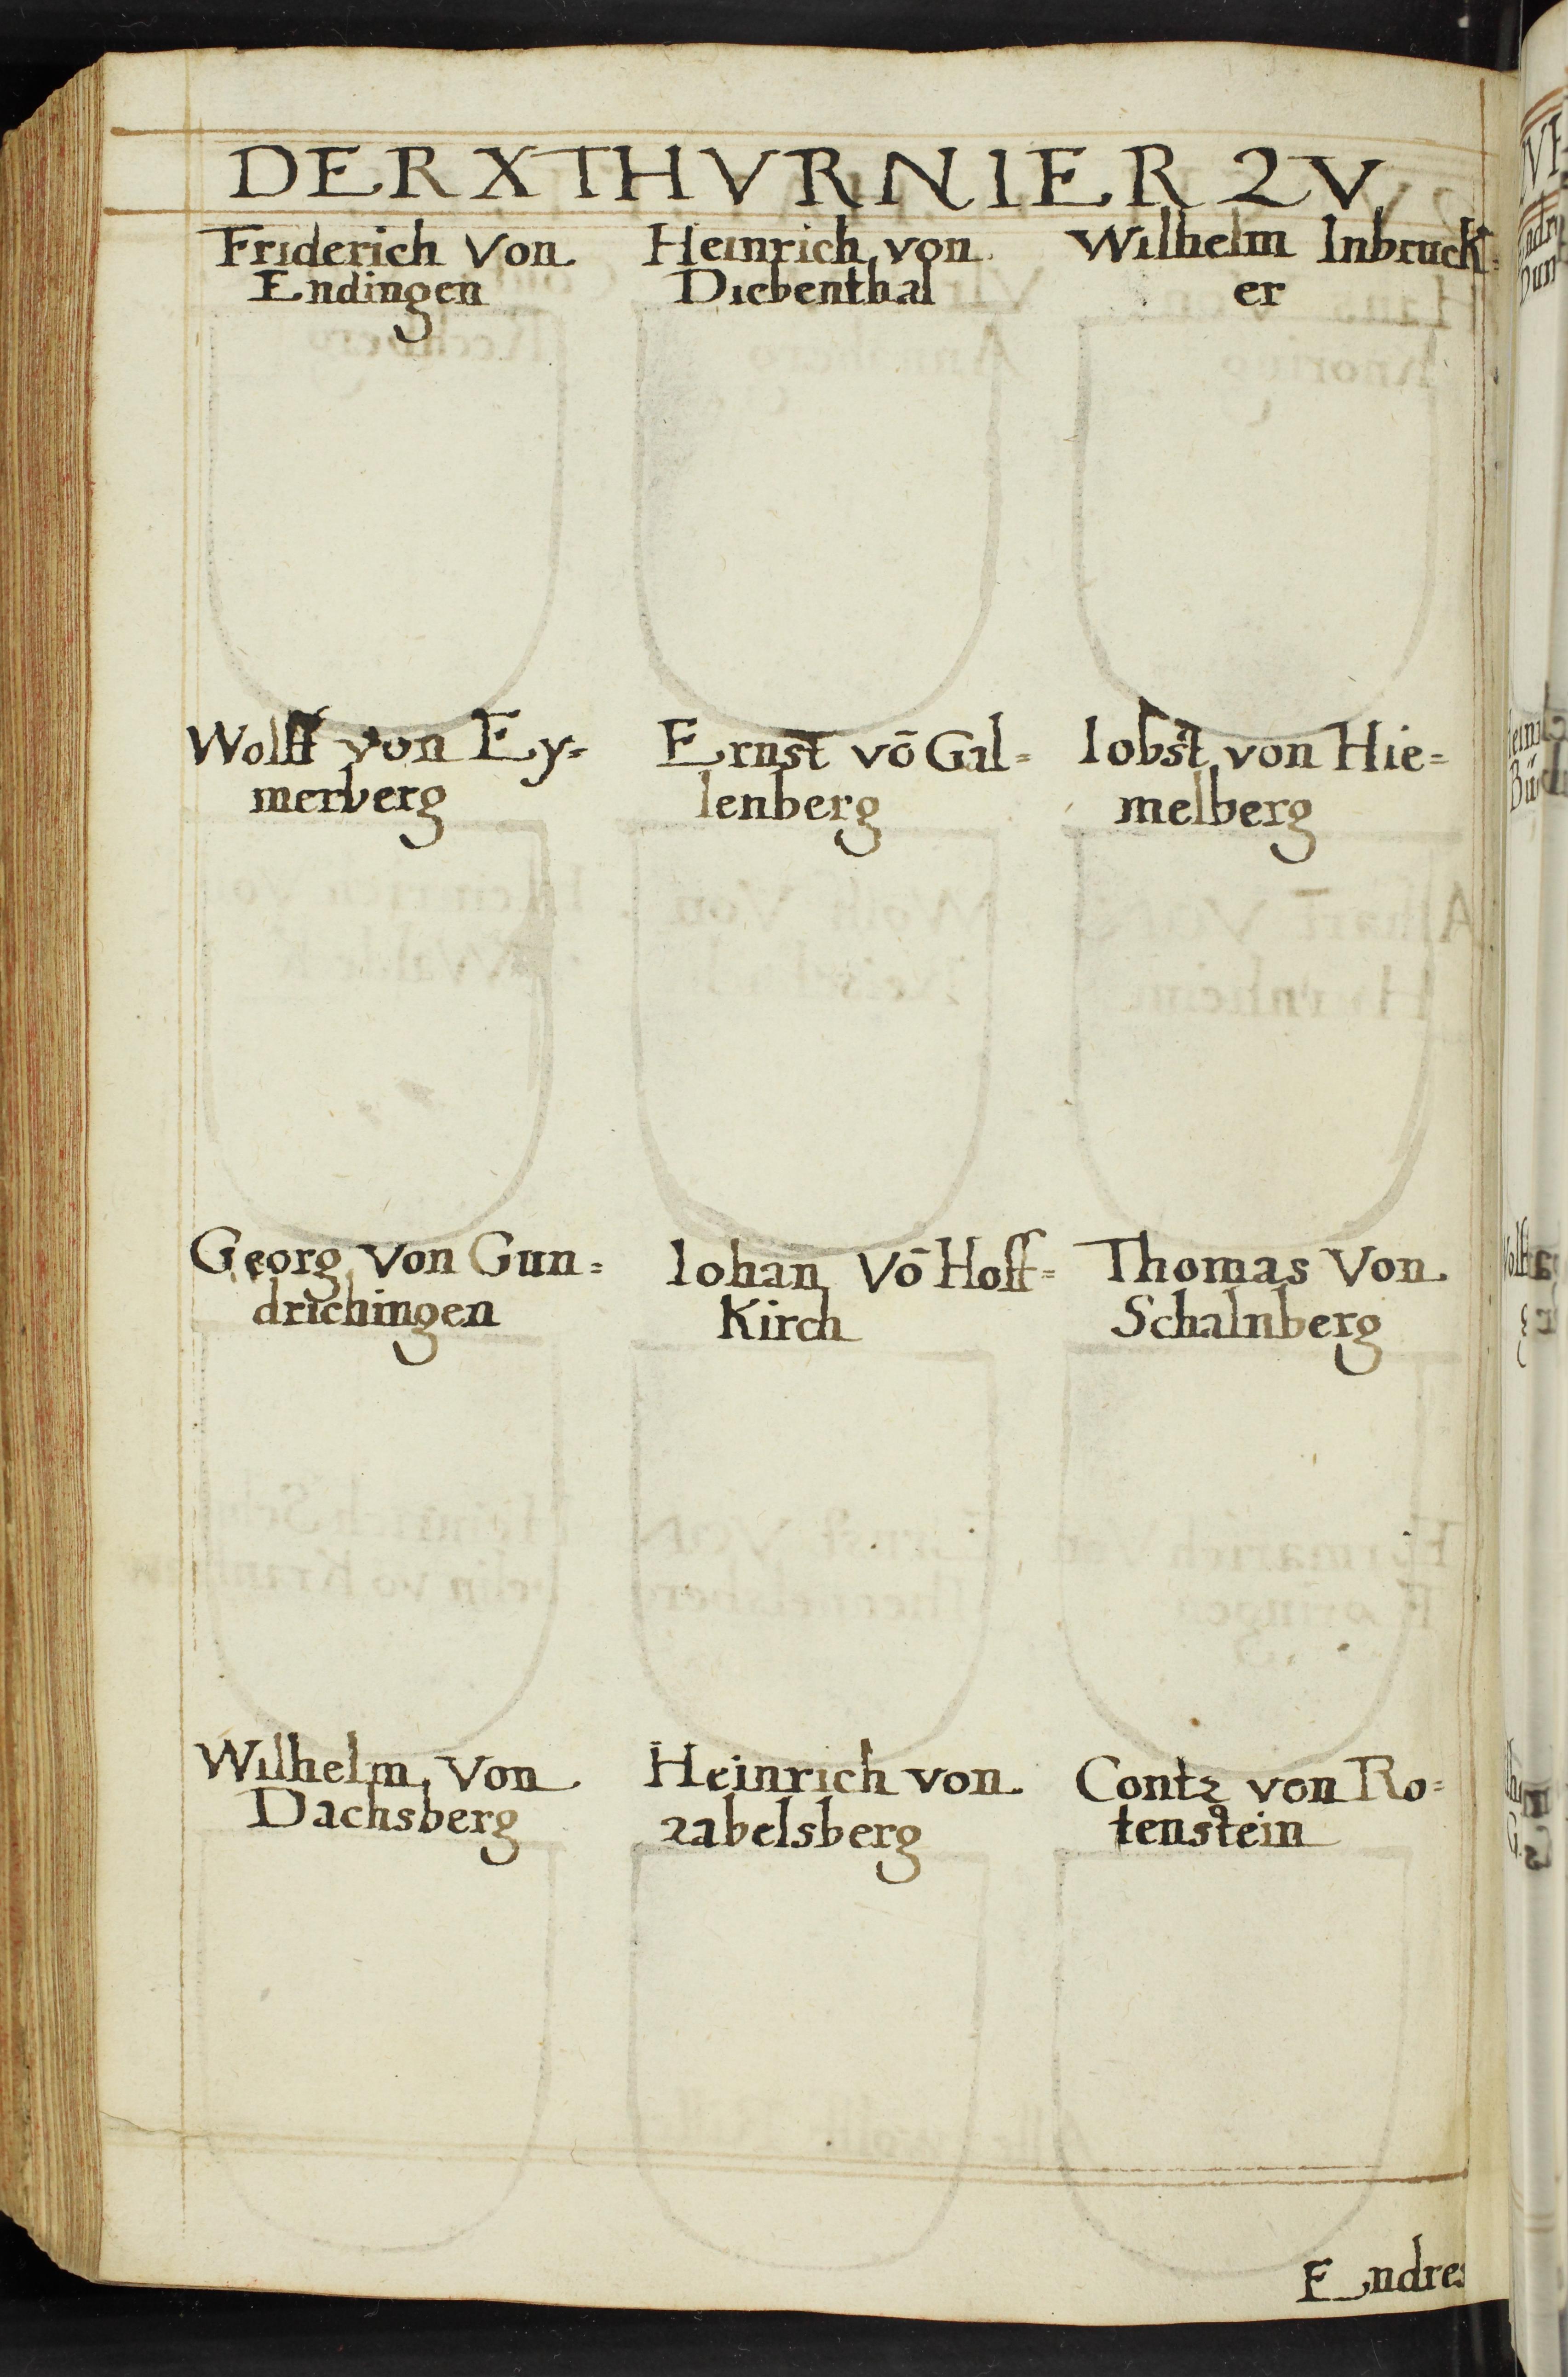 DER X THVRNIER ZV
Friderich Von
Endingen
Heinrich von
Diebenthal
Wilhelm Inbruck=
er
Wolff von Ey=
merberg
Ernst vō Gil=
lenberg
Iobst von Hie=
melberg
Georg Von Gun=
drichingen
Iohan Vō Hoff=
Kirch
Thomas Von
Schalnberg
Wilhelm Von
Dachsberg
Heinrich von
zabelsberg
Contz von Ro=
tenstein
Endres